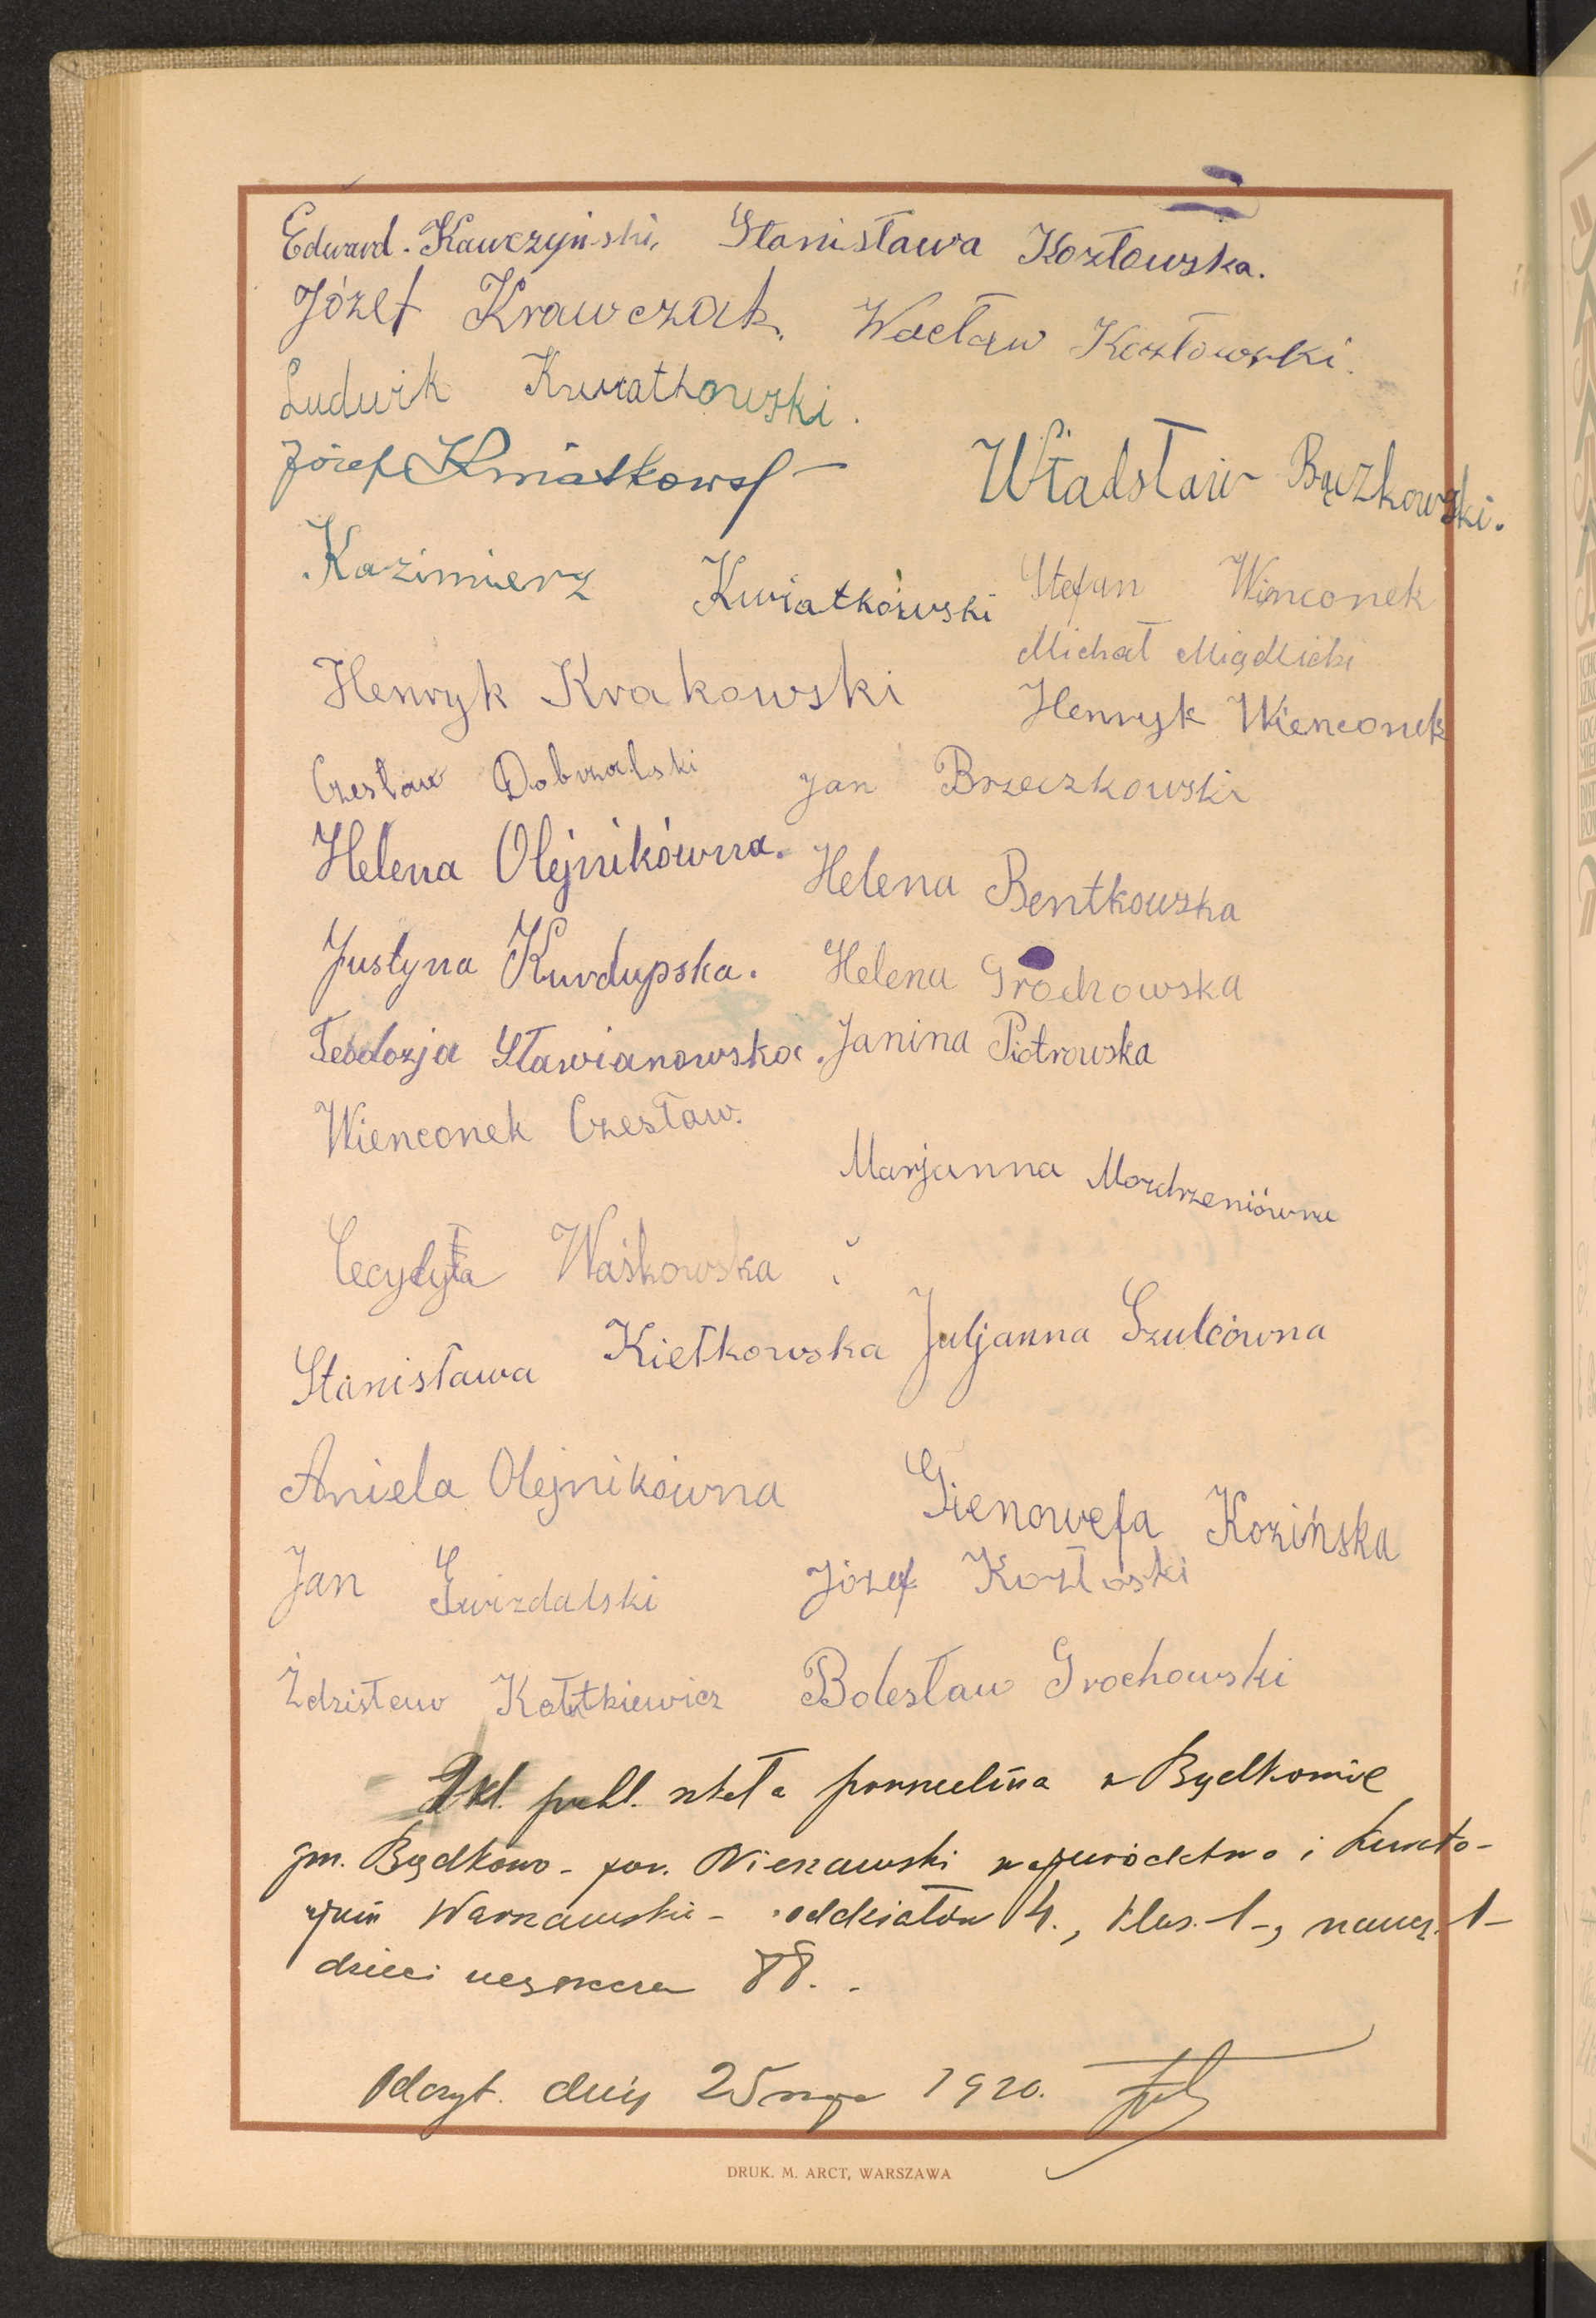 Edward. Kawczyński, Stanisława Kozłowska.
Józef Krawczak, Wacław Kozłowski.
Ludwik Kwiatkowski.
Józef Kwiatkows
Władsław Bączkowski.
Kazimierz Kwiatkowski
Stefan Winconek
Michał Miądlicki
Henryk Krakowski
Henryk Wienconek
Czesław Dobrzalski Jan Brzeczkowski
Helena Olejnikówna. Helena Bentkowska
Justyna Kurdupska. Helena Grochowska
Teodozja Sławianowska. Janina Piotrowska
Wienconek Czesław.
Marjanna Mozdrzeniówna
Cecylyła Waśkowska
Stanisława Kiełkowska Juljanna Szulcówna
Aniela Olejnikówna Gienowefa Kozińska
Jan Gwizdalski Józef Kozłoski
Żdzisław Kołtkiewicz Bolesław Grochowski
kl. publ. szkoła w Bądkowie
gm. Bądkowo - pow. Nieszawski województwo i Kurato-
rjum Warszawskie - oddziałów 4., klas. 1-, naucz. 1-
dzieci uczęszcza 88..
dnia 25 maja 1920.
DRUK. M. ARCT, WARSZAWA